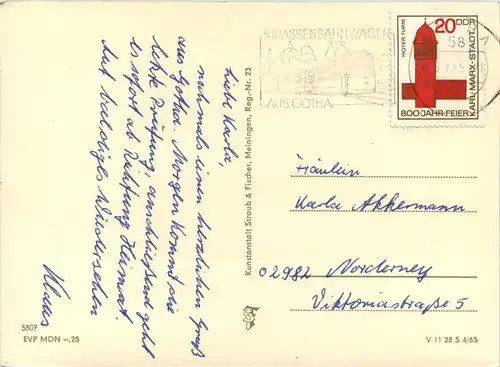 Liebe Karla,
nochmals einen herzlichen Gruß
aus Gotha. Morgen kommt die
letzte Prüfung. anschließend geht
es sofort ab Richtung Heimat.
Auf baldiges Wiedersehen
Klaus
5807
EVP MDN –,25
Kunstanstalt Straub & Fischer, Meiningen, Reg.-Nr. 23
STRASSENBAHNWAGEN
AUS GOTHA
58
20 DDR
ROTER TURM
KARL-MARX-STADT
800 JAHR-FEIER
Fräulein
Karla Akkermann
02982 Norderney
Viktoriastraße 5
V 11 28 S 4/65